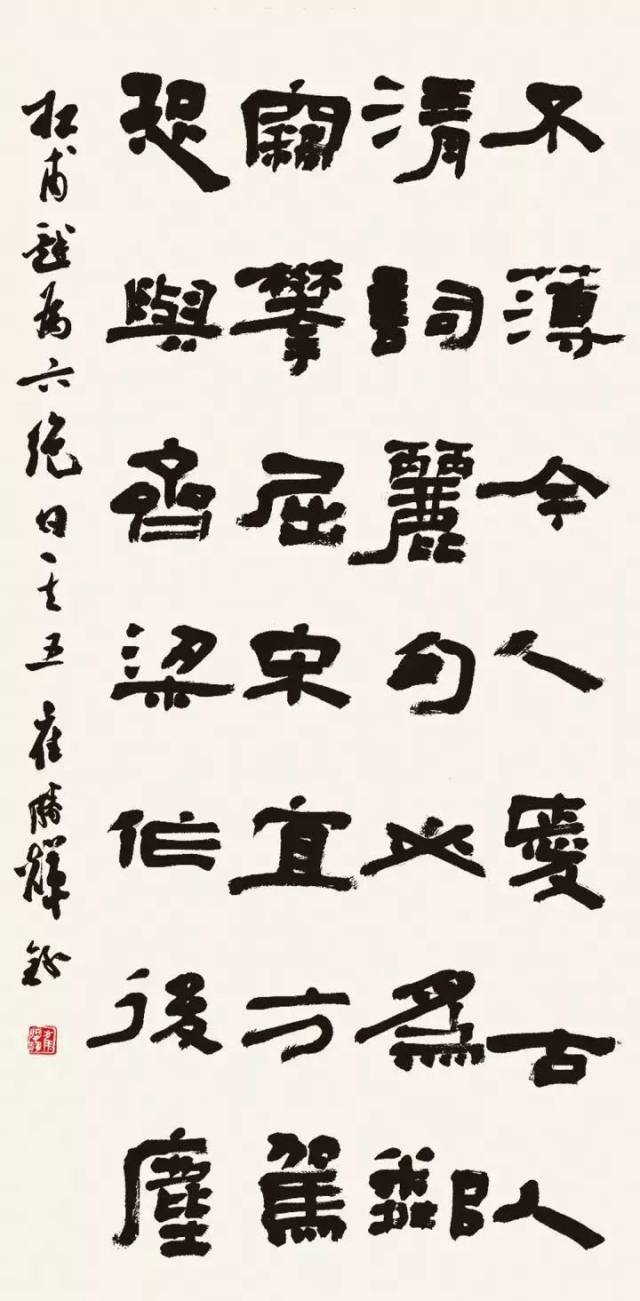 不薄今人愛古人
清詞麗句必爲鄰
竊攀屈宋宜方駕
恐與齊梁作後塵
杜甫戲為六絕句其五 崔勝輝錄